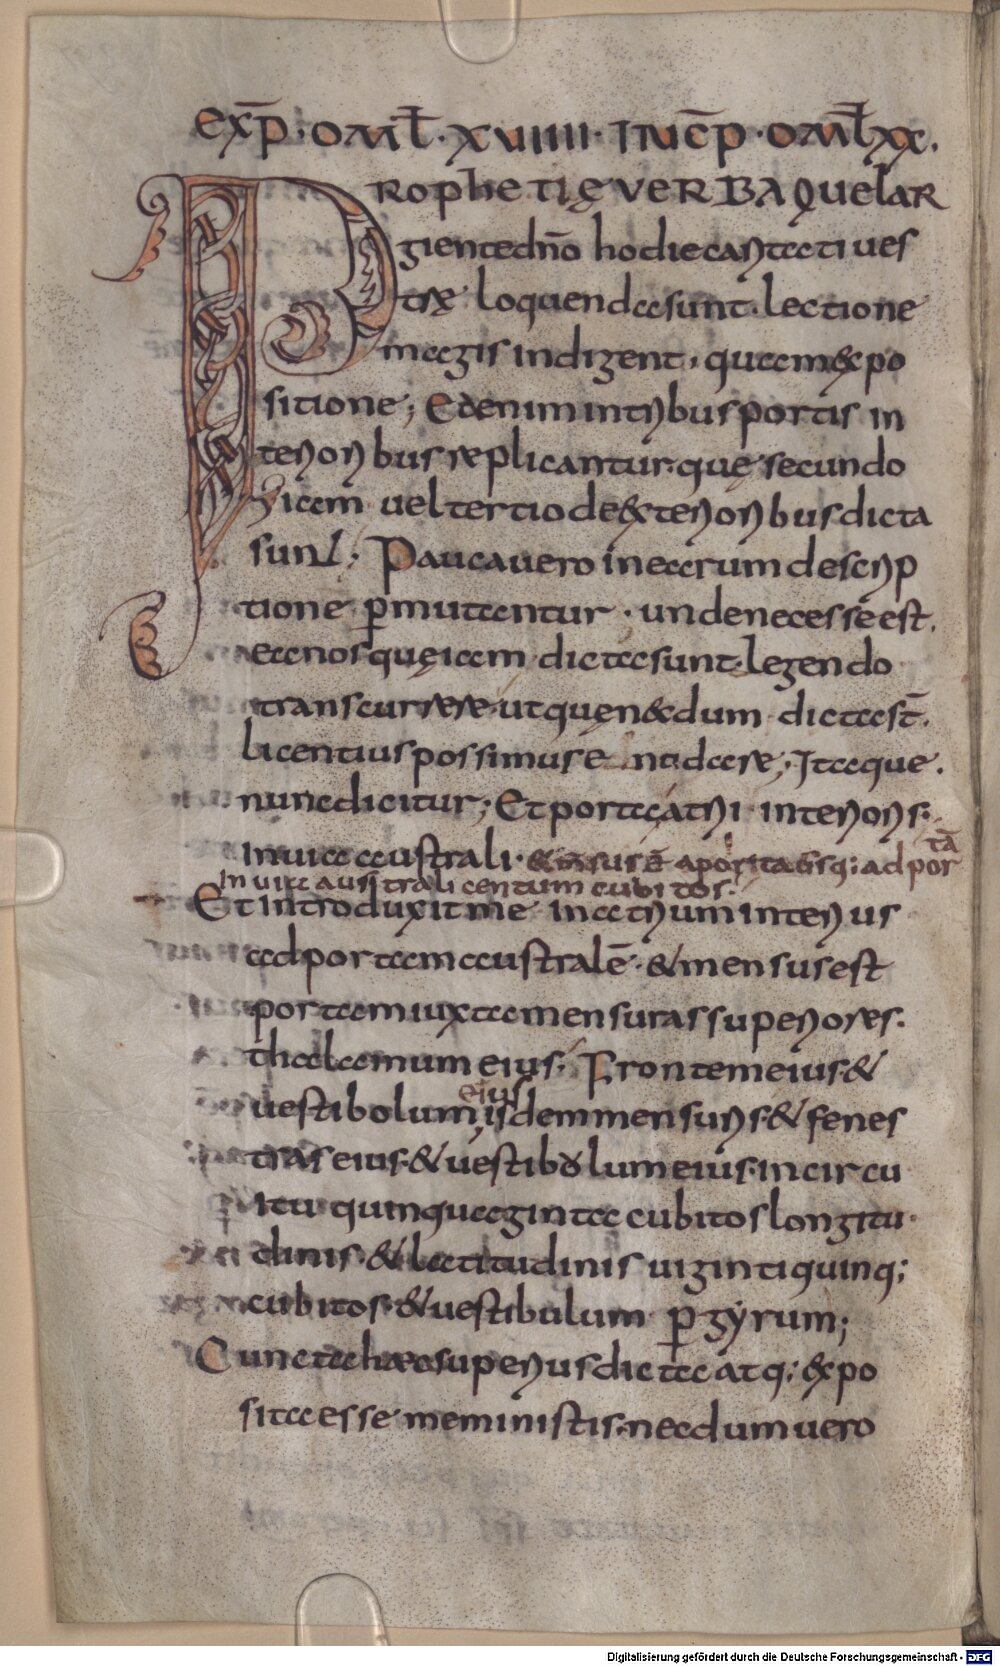 exp̄ · omł · xviiii · incp̄ · omł xx.
Rophetię verba que lar
giente dn̄o hodie caritati ues
træ loquenda sunt · lectione
magis indigent · quam expo
sitione; Eadem in tribus portis in
terioribus replicantur · quę secundo
iam uel tertio de exterioribus dicta
sunt; Pauca uero in earum descrip
tione p̱mutantur · unde necesse est.
ea nos quę iam dicta sunt · legendo
transcurrere · ut quę necdum dicta st̄.
licentius possimus e nudare; Itaque.
nunc dicitur; Et porta atrii interioris.
in uia australi · & mensus ē a porta usq; ad por
tā
in uia australi centum cubitos.
Et introduxit me in atrium interius
ad portam australē · & mensus est
portam iuxta mensuras superiores.
thalamum eius. Frontem eius &
eius
uestibolum isdem mensuris · & fenes
tras eius · & uestibolum eius · in circu
itu quinquaginta cubitos longitu
dinis · & latitudinis uiginti quinq;
cubitos · & uestibulum p̱ gyrum;
Cuncta haec superius dicta atq; expo
sita esse meministis · necdum uero
Digitalisierung gefördert durch die Deutsche Forschungsgemeinschaft - DFG